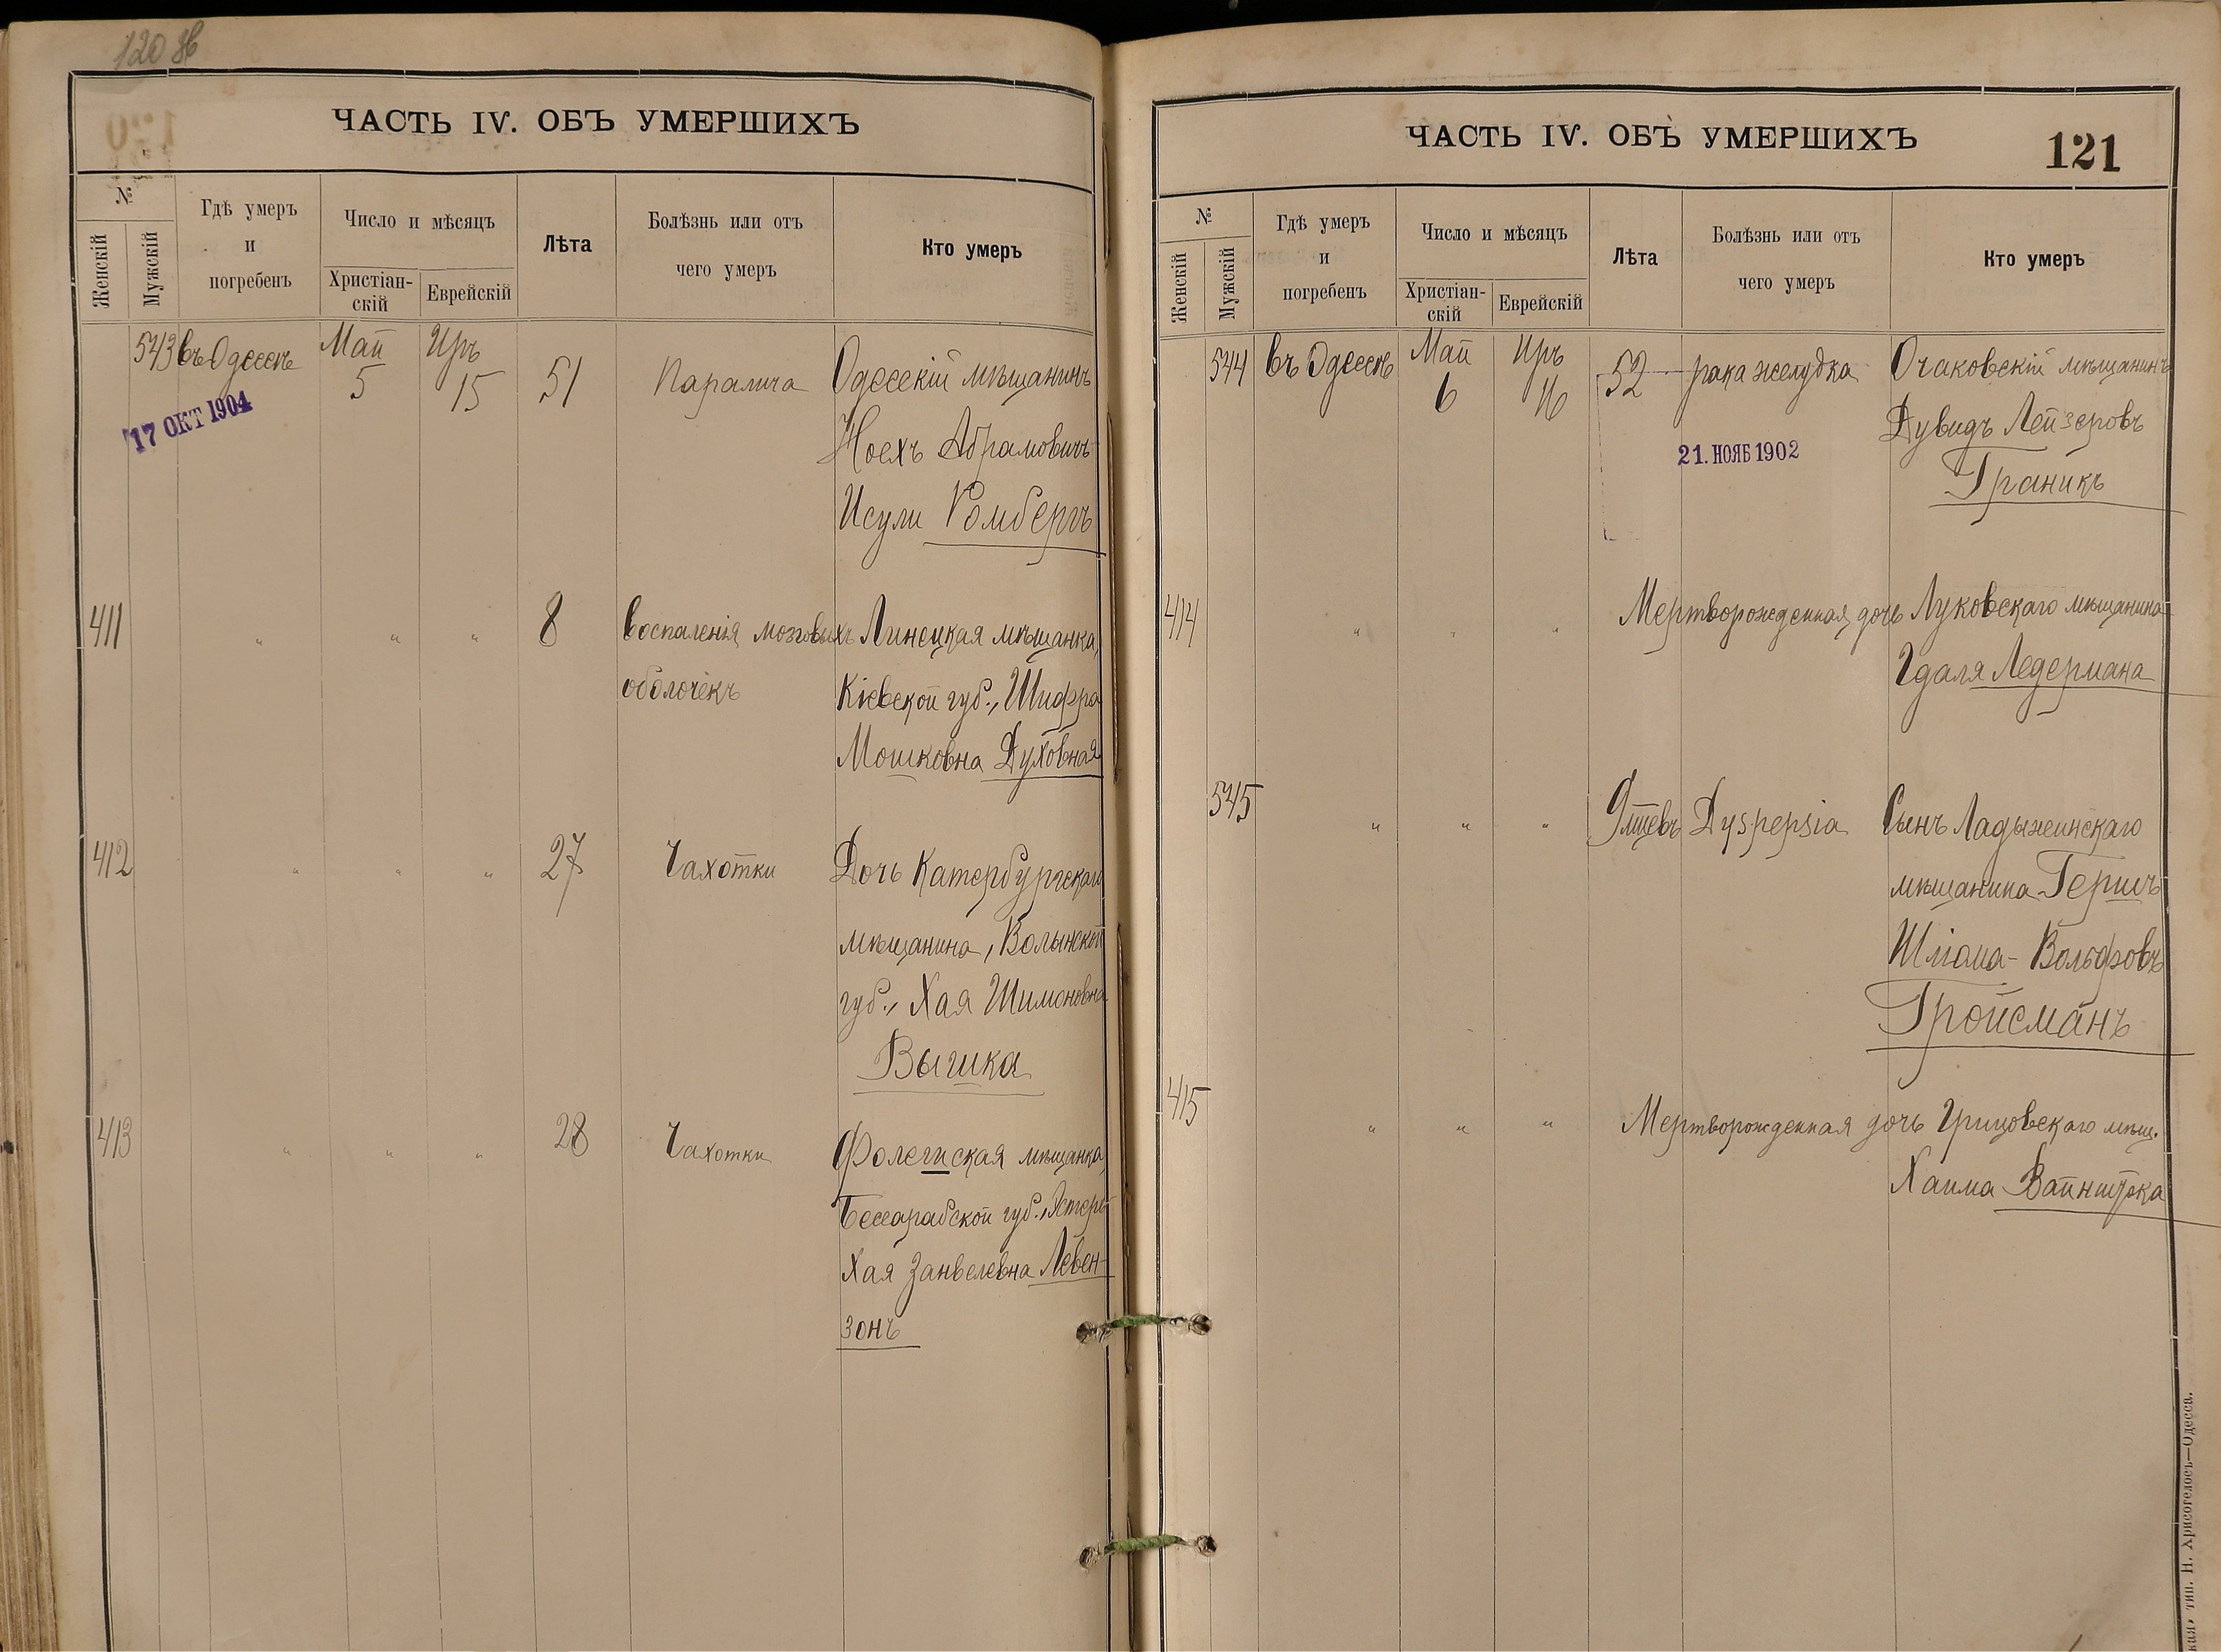 120 об
ЧАСТЬ IV. ОБЪ УМЕРШИХЪ
№
Женскій
Мужскій
Гдѣ умеръ
и
погребенъ
Число и мѣсяцъ
Христіан-
скій
Еврейскій
Лѣта
Болѣзнь или отъ
чего умеръ
Кто умеръ
543 въ Одессѣ Май Иръ
5 15 51 Паралича Одесскій мѣщанинъ
17 ОКТ 1904
Ноехъ Абрамовичъ
Исули Ромбергъ
411 " " " 8 Воспаленія мозговыхъ Линецкая мѣщанка,
оболочекъ Кіевской губ., Шифра
Мошковна Духовная
412 " " " 27 Чахотки Дочь Катербургскаго
мѣщанина, Волынской
губ., Хая Шимоновна
Вышка
413 " " " 28 Чахотки Фолештская мѣщанка,
Бессарабской губ., Эстеръ-
Хая Занвелевна Левен-
зонъ
ЧАСТЬ IV. ОБЪ УМЕРШИХЪ
121
№
Женскій
Мужскій
Гдѣ умеръ
и
погребенъ
Число и мѣсяцъ
Христіан-
скій
Еврейскій
Лѣта
Болѣзнь или отъ
чего умеръ
Кто умеръ
544 въ Одессѣ Май Иръ
6 16 52 рака желудка Очаковскій мѣщанинъ
Дувидъ Лейзеровъ
21. НОЯБ 1902
Граникъ
414 " " " Мертворожденная дочь Луковскаго мѣщанина
Гдаля Ледермана
545 " " " 9 мцевъ Dyspepsia Сынъ Ладыжинскаго
мѣщанина Гершъ
Шліома-Вольфовъ
Гройсманъ
415 " " " Мертворожденная дочь Грицовскаго мѣщ.
Хаима Вайнштока
тип. И. Хрисогелосъ—Одесса.